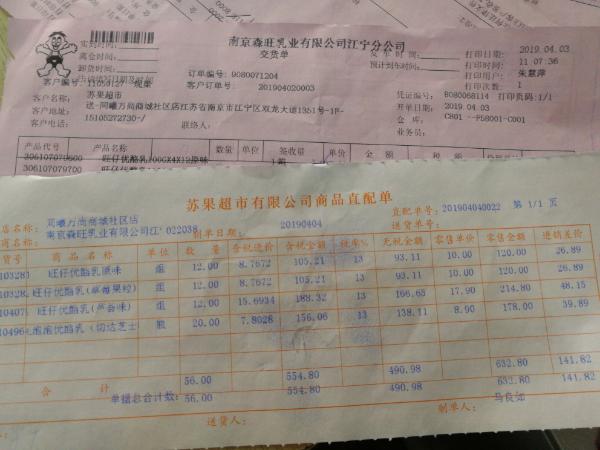 南京森旺乳业有限公司江宁分公司
交货单
实到时间:
离仓时间:
卸货时间:
订单编号: 9080071204
客户订单号: 201904020003
打印日期 2019.04.03
打印时间 11 07 36
打印用户: 朱慧萍
打印次数 1
预计到车时间:
客户名称: 苏果超市
凭证编号: B080068114 打印页码:1/1
开单日期: 2019.04.03
客户地址: 送-同曦万尚商城社区店江苏省南京市江宁区双龙大道1351号-1F-
仓库: C801 --P58001-C001
客户电话: 15105272730-/
业务员:
产品代号 产品名称 数量 单位 签收量 单价 金额
306107079600 旺仔优酪乳100GX4X12原味
306107079700
苏果超市有限公司商品直配单
店名称: 同曦万尚商城社区店
商名称: 南京森旺乳业有限公司江' 022038
制单日期: 20190404
直配单号: 201904040022 第 1/1 页
货号 商品名称 单位 数量 含税进价 含税金额 税率% 无税金额 零售单价 零售金额 进销差价
10328 旺仔优酪乳原味 组 12.00 8.7672 105.21 13 93.11 10.00 120.00 26.89
10328 旺仔优酪乳(草莓果粒) 组 12.00 8.7672 105.21 13 93.11 10.00 120.00 26.89
10407 旺仔优酪乳(芦荟味) 组 12.00 15.6934 188.32 13 166.65 17.90 214.80 48.15
10496 泡泡优酪乳(切达芝士 瓶 20.00 7.8028 156.06 13 138.11 8.90 178.00 39.89
合计 56.00 554.80 490.98 632.80 141.82
单据总合计数: 56.00 554.80 490.98 632.80 141.82
送货人:
制单人: 马良如